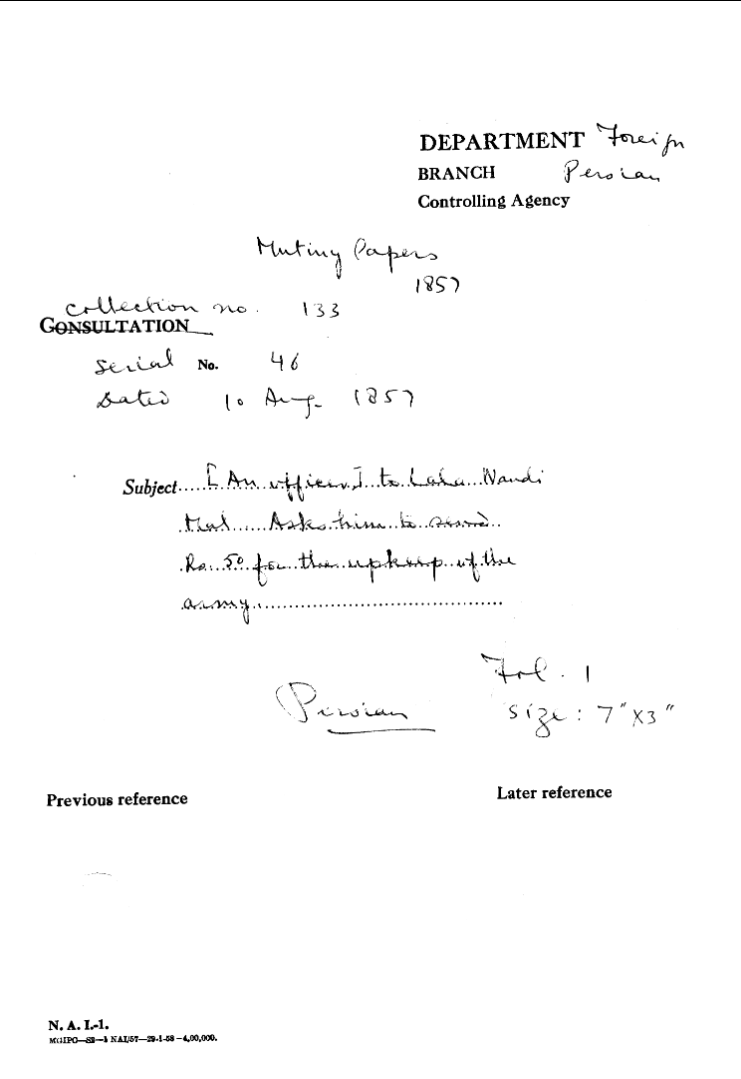 DEPARTMENT Foreign
BRANCH Persian
Controlling Agency
Mutiny Papers
1857
Collection no. 133
CONSULTATION
Serial No. 46
Dated 10 Aug. 1857
Subject.....[An officer]..to Lala..Nandi
Mal.....Asks him to send..
Rs..50 for the upkeep of the
army.......................................
Fol. 1
Persian size: 7"x3"
Previous reference Later reference
N. A. I.-1.
MGIPO—S2—1 NAI/57—29-1-58—4,00,000.